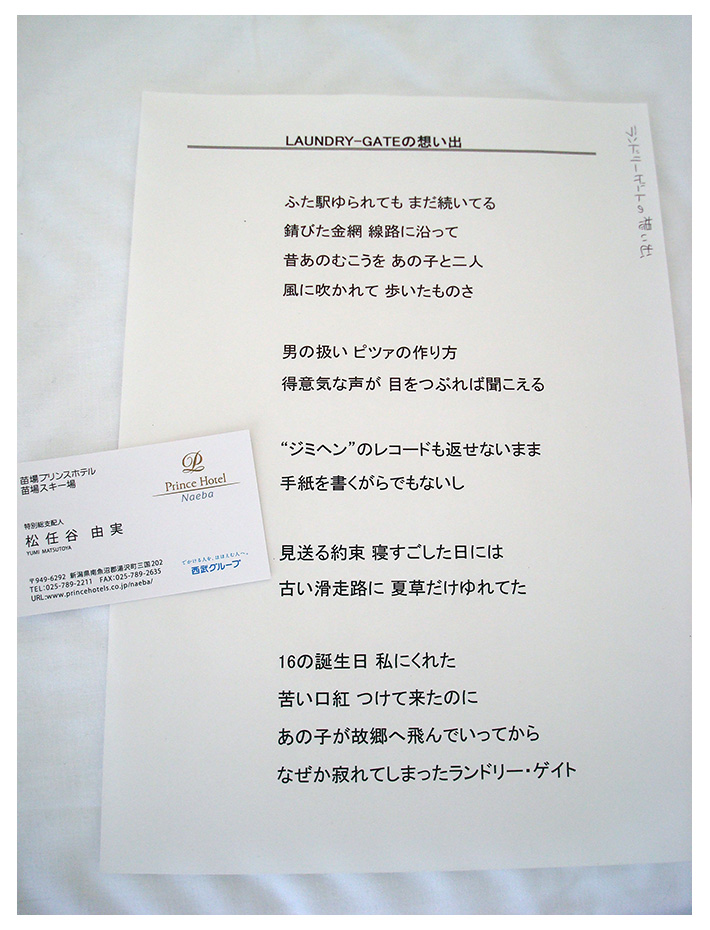 LAUNDRY-GATEの想い出
ランドリーゲイトの想い出
ふた駅ゆられても まだ続いてる
錆びた金網 線路に沿って
昔あのむこうを あの子と二人
風に吹かれて 歩いたものさ
男の扱い ピツァの作り方
得意気な声が 目をつぶれば聞こえる
“ジミヘン”のレコードも返せないまま
手紙を書くがらでもないし
見送る約束 寝すごした日には
古い滑走路に 夏草だけゆれてた
16の誕生日 私にくれた
苦い口紅 つけて来たのに
あの子が故郷へ飛んでいってから
なぜか寂れてしまったランドリー・ゲイト
苗場プリンスホテル
苗場スキー場
Prince Hotel
Naeba
特別総支配人
松任谷 由実
YUMI MATSUTOYA
〒949-6292 新潟県南魚沼郡湯沢町三国202
TEL:025-789-2211 FAX:025-789-2635
URL:www.princehotels.co.jp/naeba/
でかける人を、ほほえむ人へ。
西武グループ